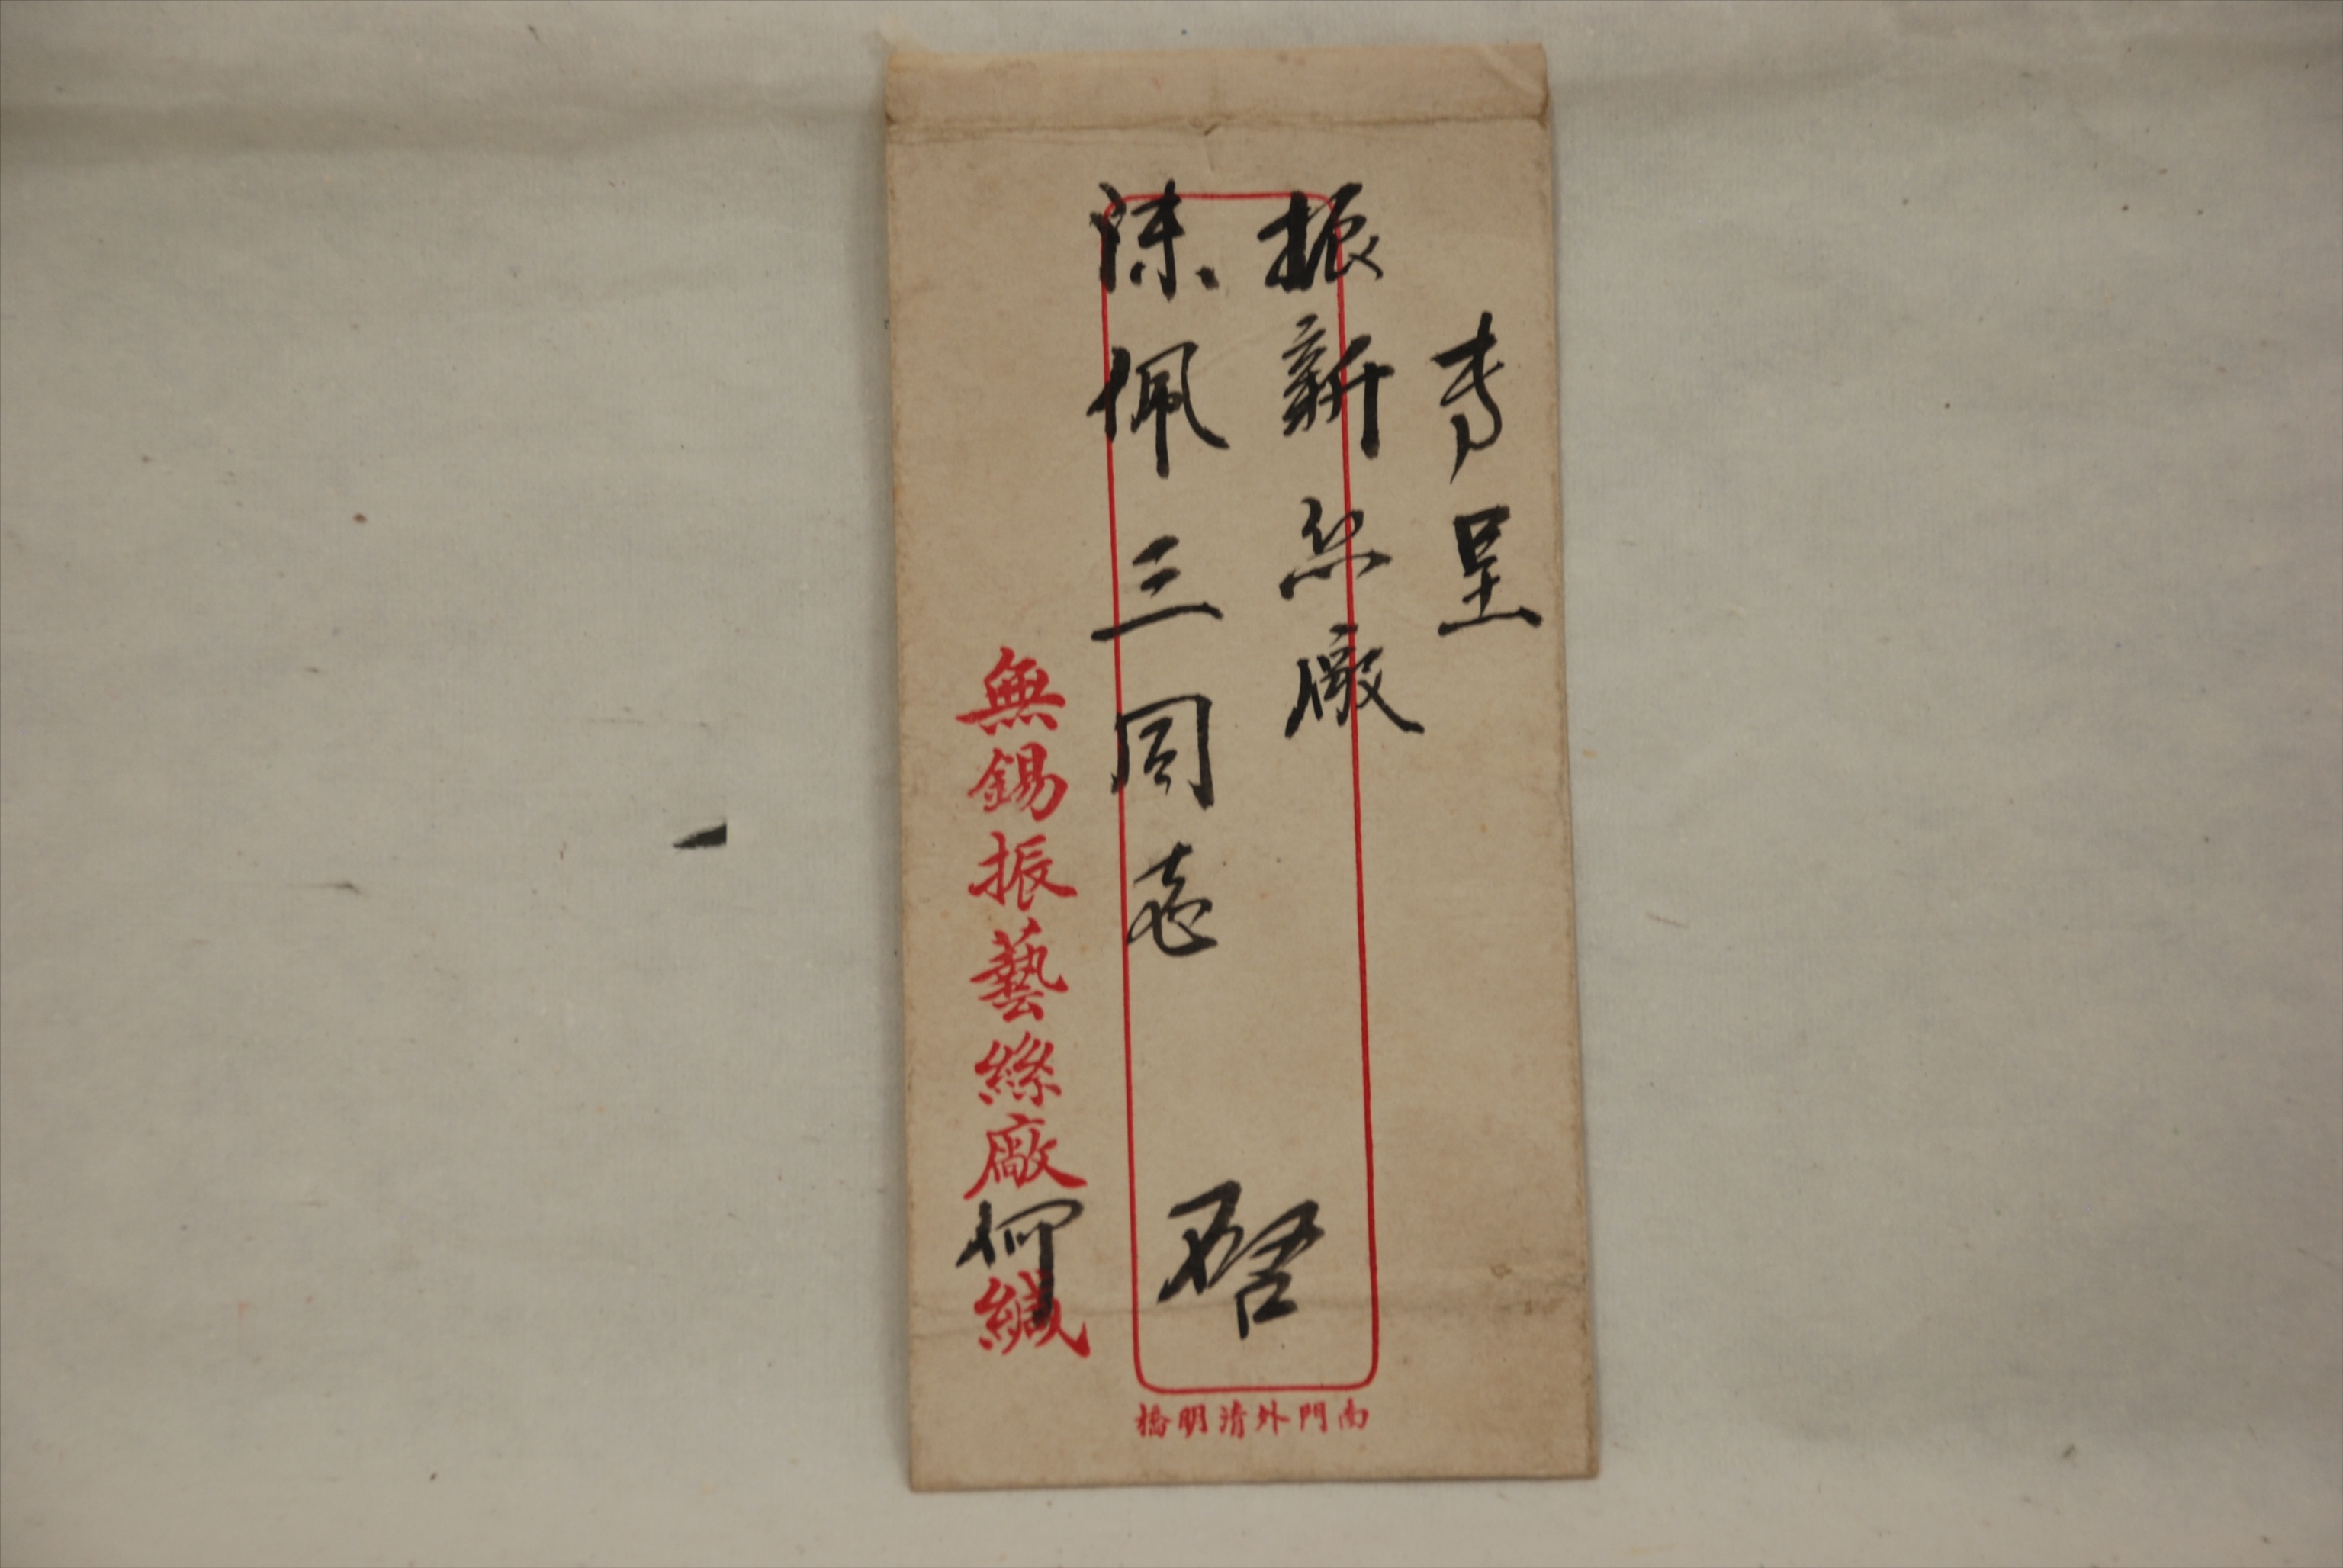 專呈
振新丝廠
陳佩三同志 啓
無錫振藝絲廠何緘
南門外清明橋